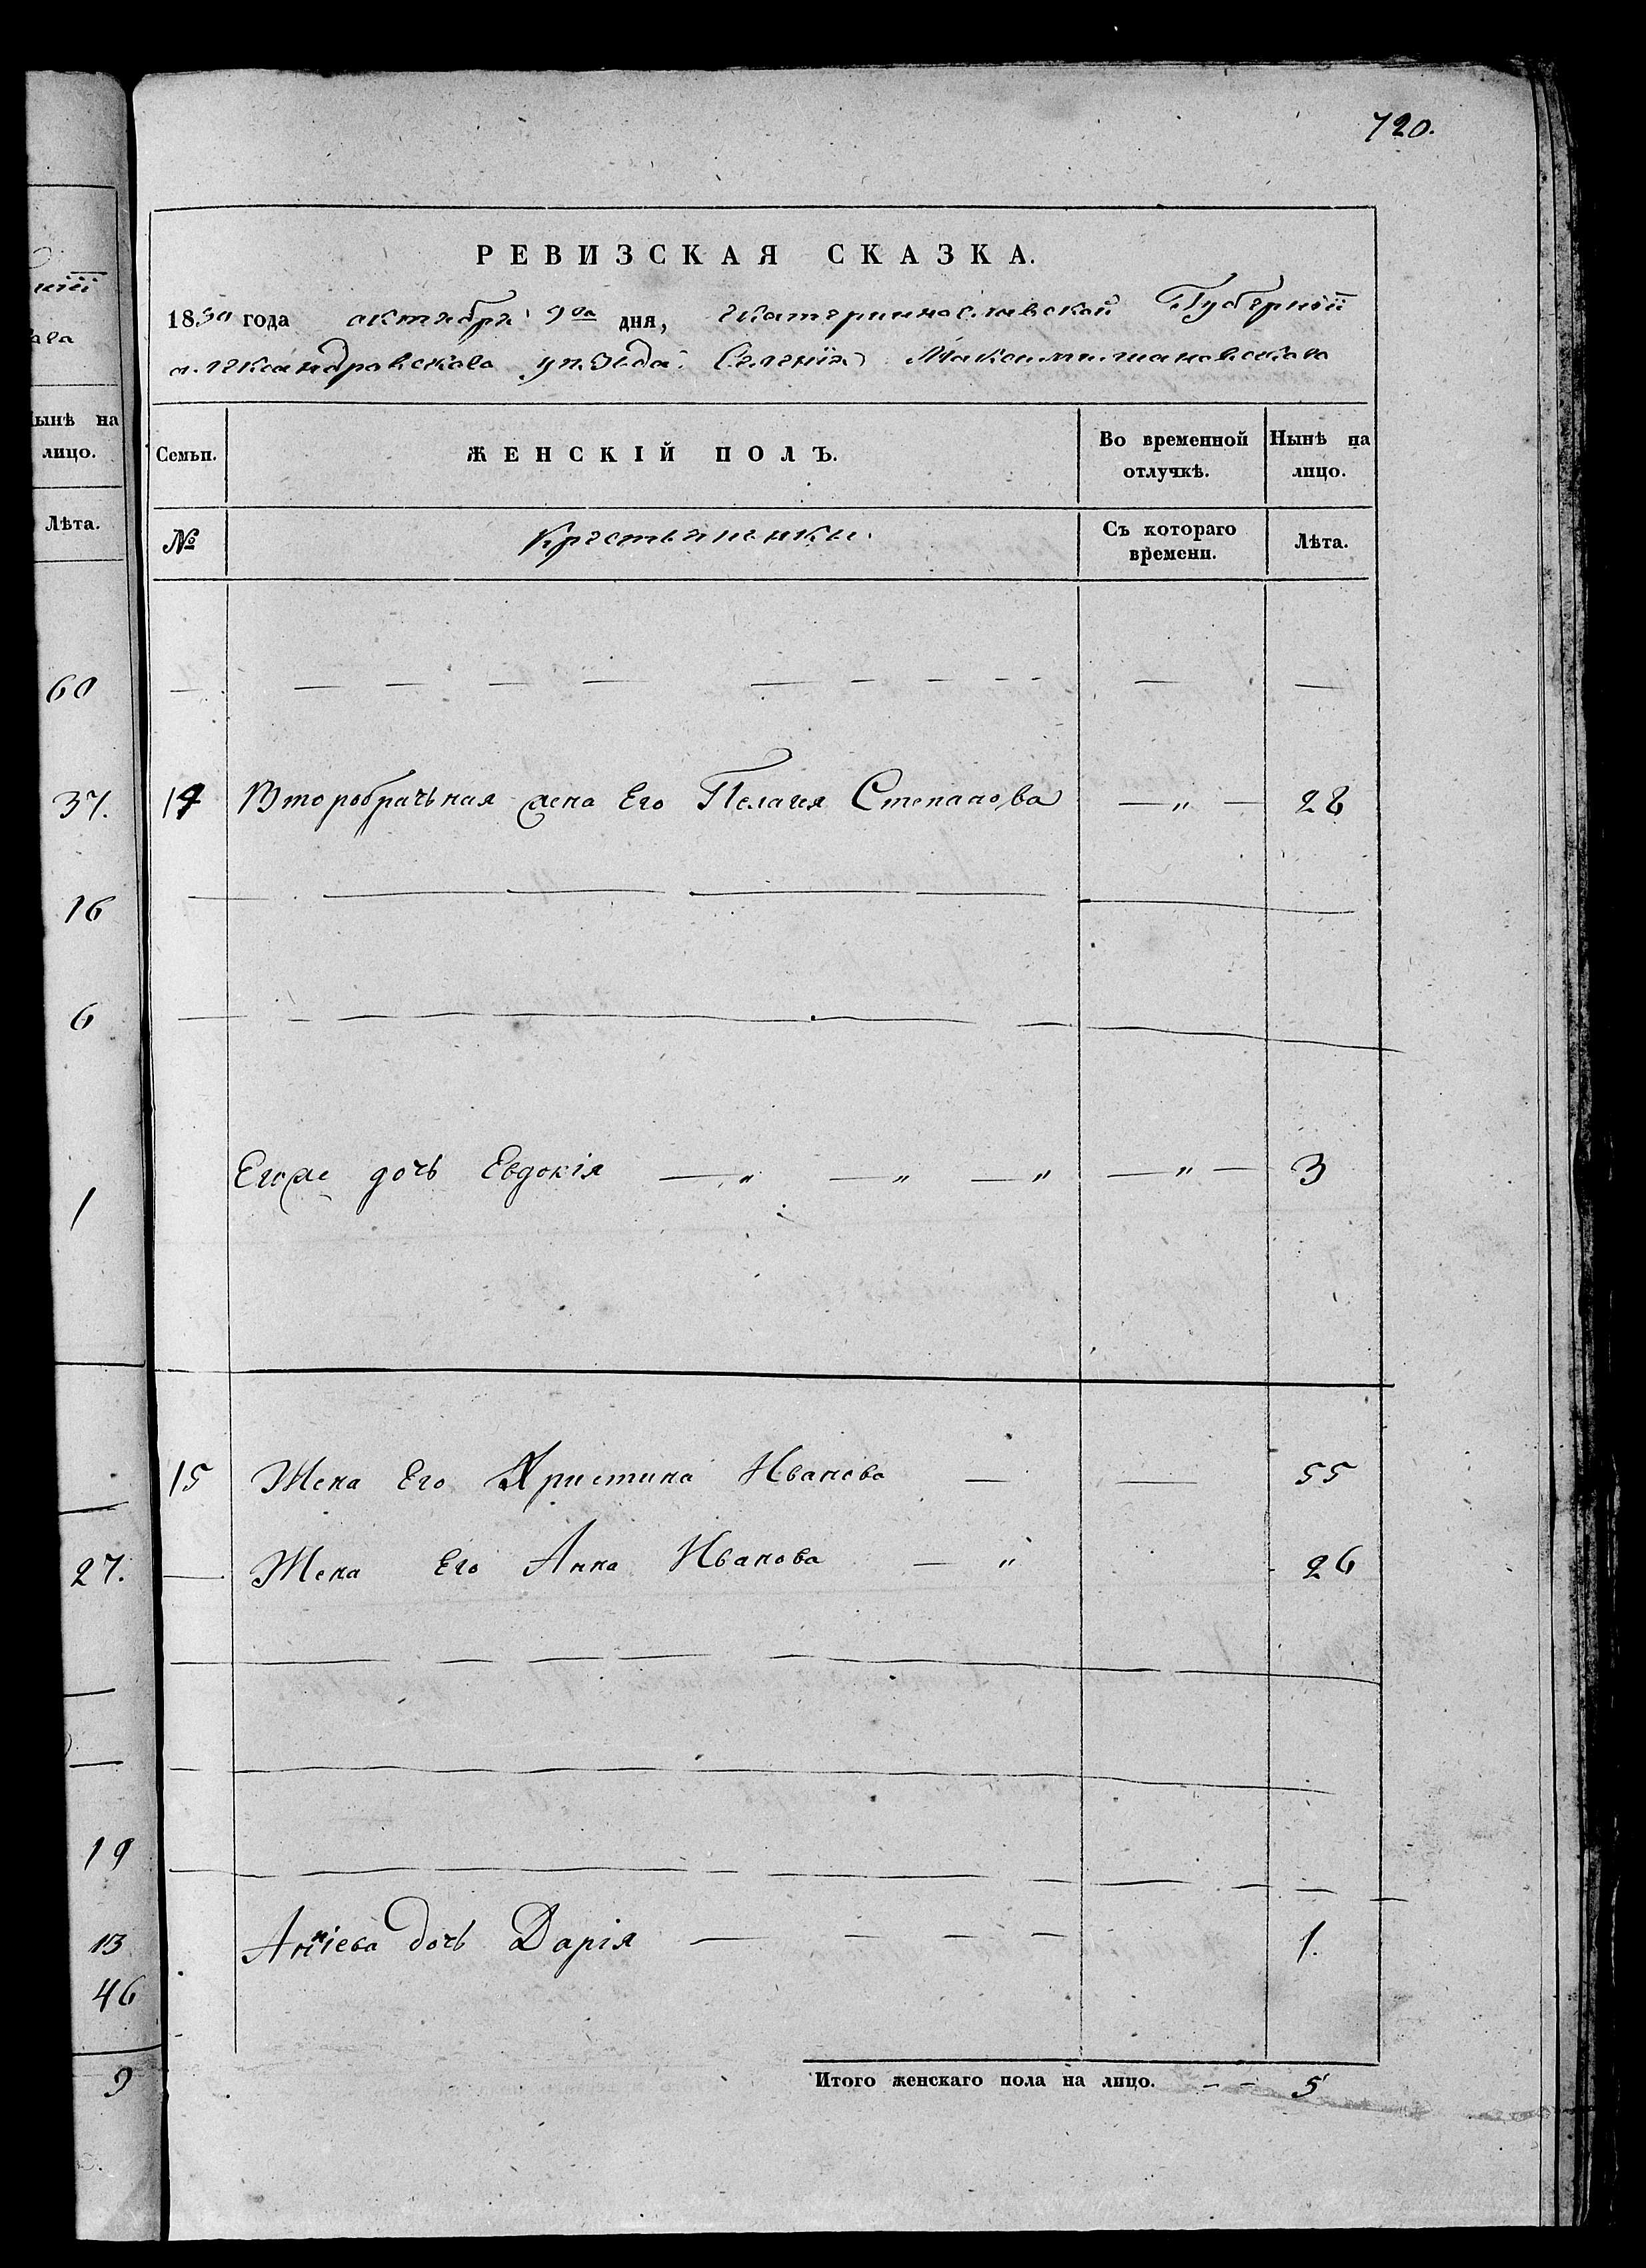 720.
РЕВИЗСКАЯ СКАЗКА.
1850 года октября 9го дня, екатеринославской Губернiи
александровскаго уѣзда Селенiя Максимилиановскаго
нiи
ава
Нынѣ на
лицо.
Лѣта.
Семьи.
ЖЕНСКІЙ ПОЛЪ.
Во временной
отлучкѣ.
Нынѣ на
лицо.
№
крестьяненки.
Съ котораго
времени.
Лѣта.
60
37.
14 Второбрачьная жена Его Пелагея Степанова — „ — 28
16
6
1
Егоже дочь Евдокiя — „ — „ — „ — „ — 3
15 Жена Его Христина Иванова — — 55
27.
— Жена Его Анна Иванова — „ 26
19
13
Аннiева дочь Дарiя — — — — 1.
46
9
Итого женскаго пола на лицо. - - 5